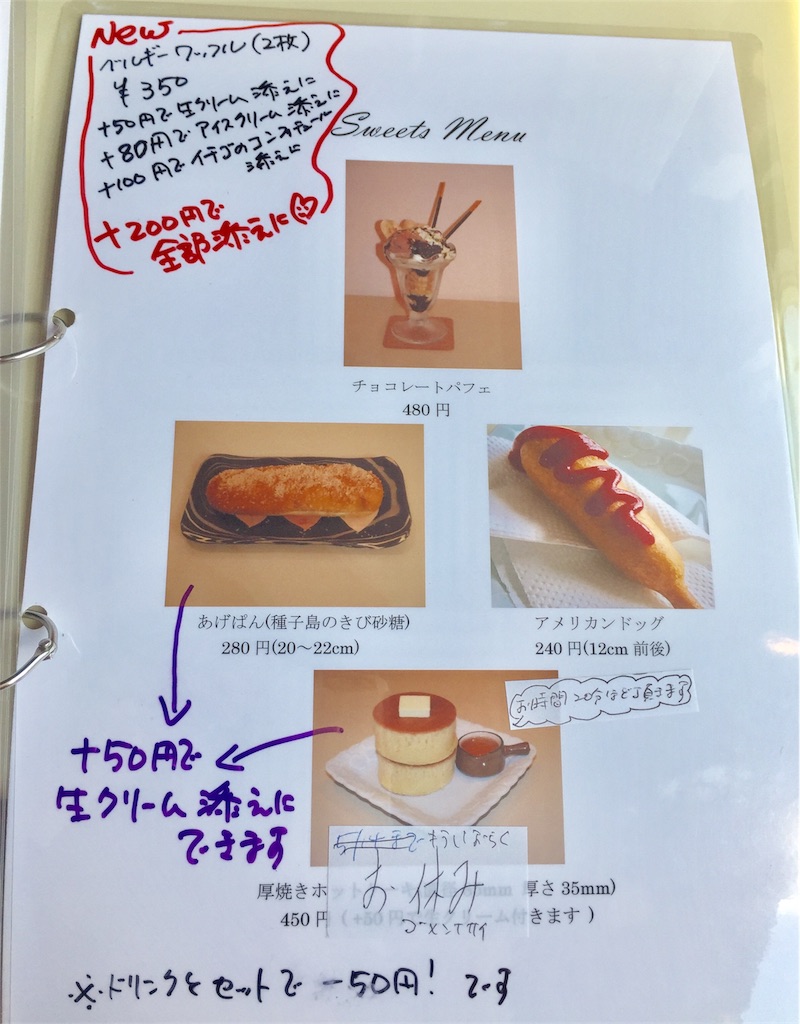 New
ベルギーワッフル(2枚)
¥350
+50円で生クリーム添えに
+80円でアイスクリーム添えに
+100円でイチゴのコンフィチュール
添えに
+200円で
全部添えに
Sweets Menu
チョコレートパフェ
480 円
あげぱん(種子島のきび砂糖)
280 円(20～22cm)
アメリカンドッグ
240 円(12cm 前後)
お時間20分ほど頂きます
+50円で
生クリーム添えに
できます
もうしばらく
お休み
ゴーメンナサイ
厚焼きホットケーキ mm 厚さ 35mm)
450 円 ( +50 円で生クリーム付きます )
※ドリンクとセットで -50円! です